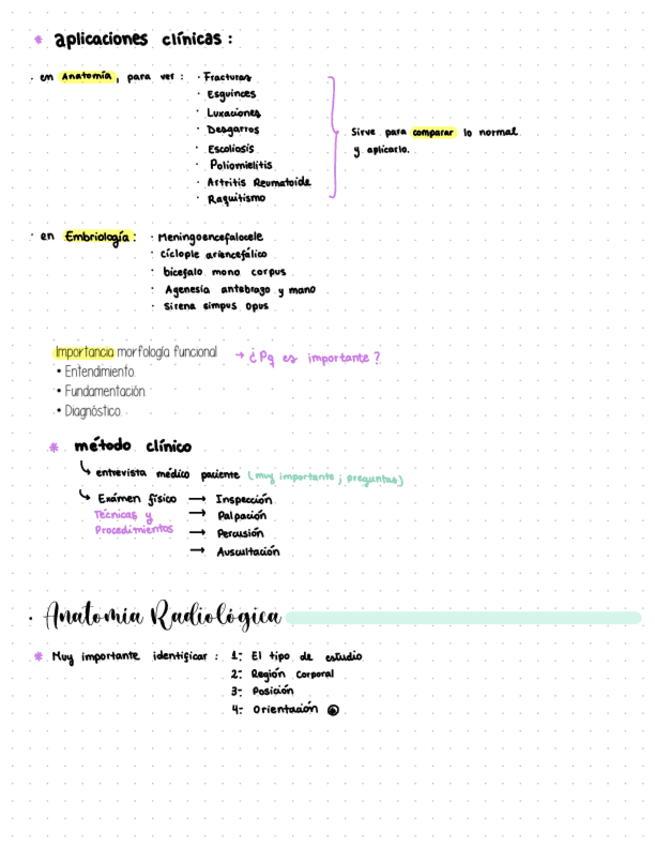 * aplicaciones clínicas :
· en Anatomía, para ver : · Fracturas
· Esguinces
· Luxaciones
· Desgarros
· Escoliosis
· Poliomielitis
· Artritis Reumatoide
· Raquitismo
Sirve para comparar lo normal
y aplicarlo.
· en Embriología: · Meningoencefalocele
· cíclople ariencefálico
· bicefalo mono corpus
· Agenesia antebrazo y mano
· Sirena simpus opus
Importancia morfología funcional → ¿Pq es importante?
• Entendimiento
• Fundamentación
• Diagnóstico
* método clínico
↳ entrevista médico paciente (muy importante ; preguntas)
↳ Exámen físico → Inspección
Técnicas y
Procedimientos
→ Palpación
→ Percusión
→ Auscultación
· Anatomía Radiológica
* Muy importante identificar : 1- El tipo de estudio
2- Región Corporal
3- Posición
4- Orientación